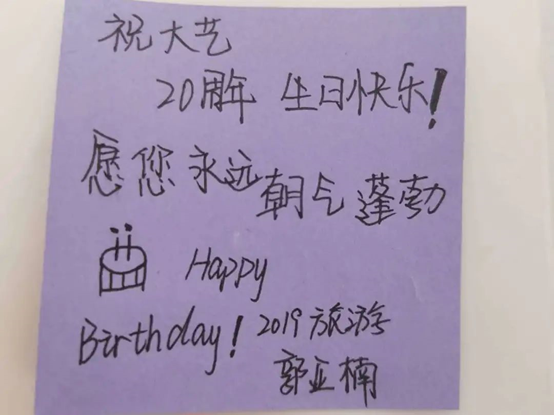 祝大艺
20周年 生日快乐!
愿您永远朝气蓬勃
Happy
Birthday! 2019旅游
郭亚楠